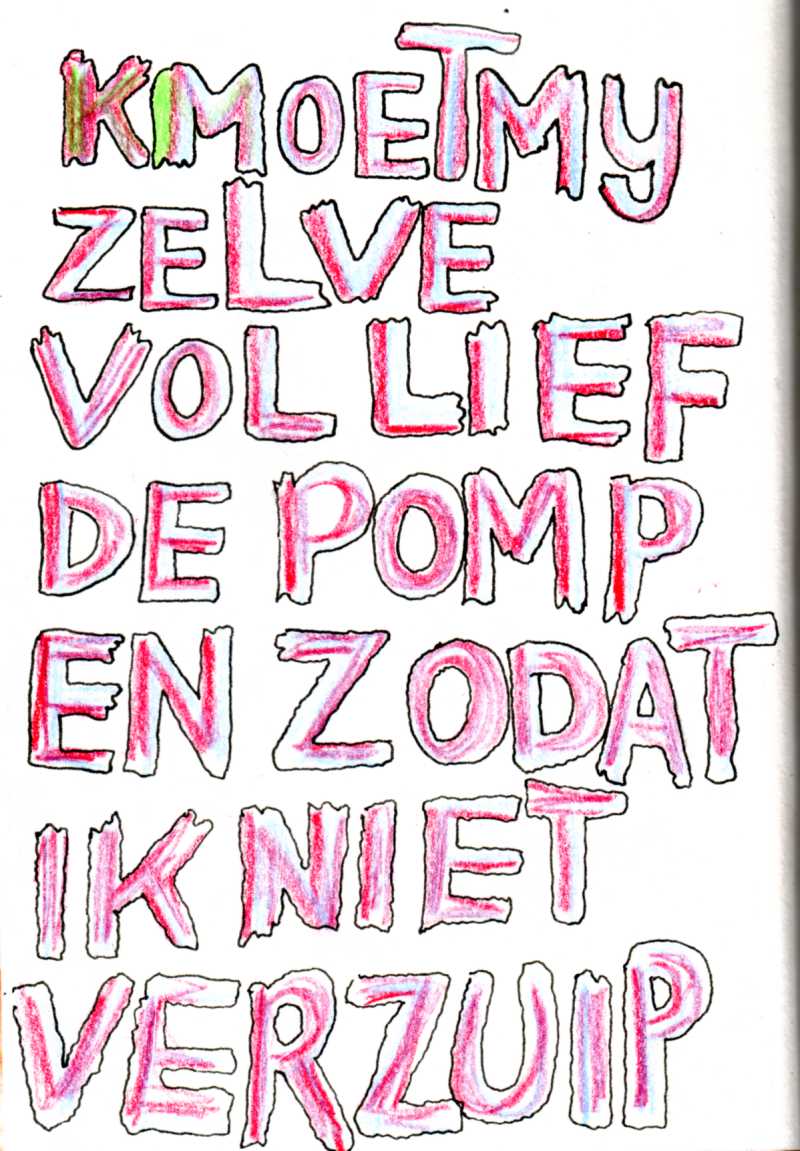 KMOET MY
ZELVE
VOL LIEF
DE POMP
EN ZODAT
IK NIET
VERZUIP